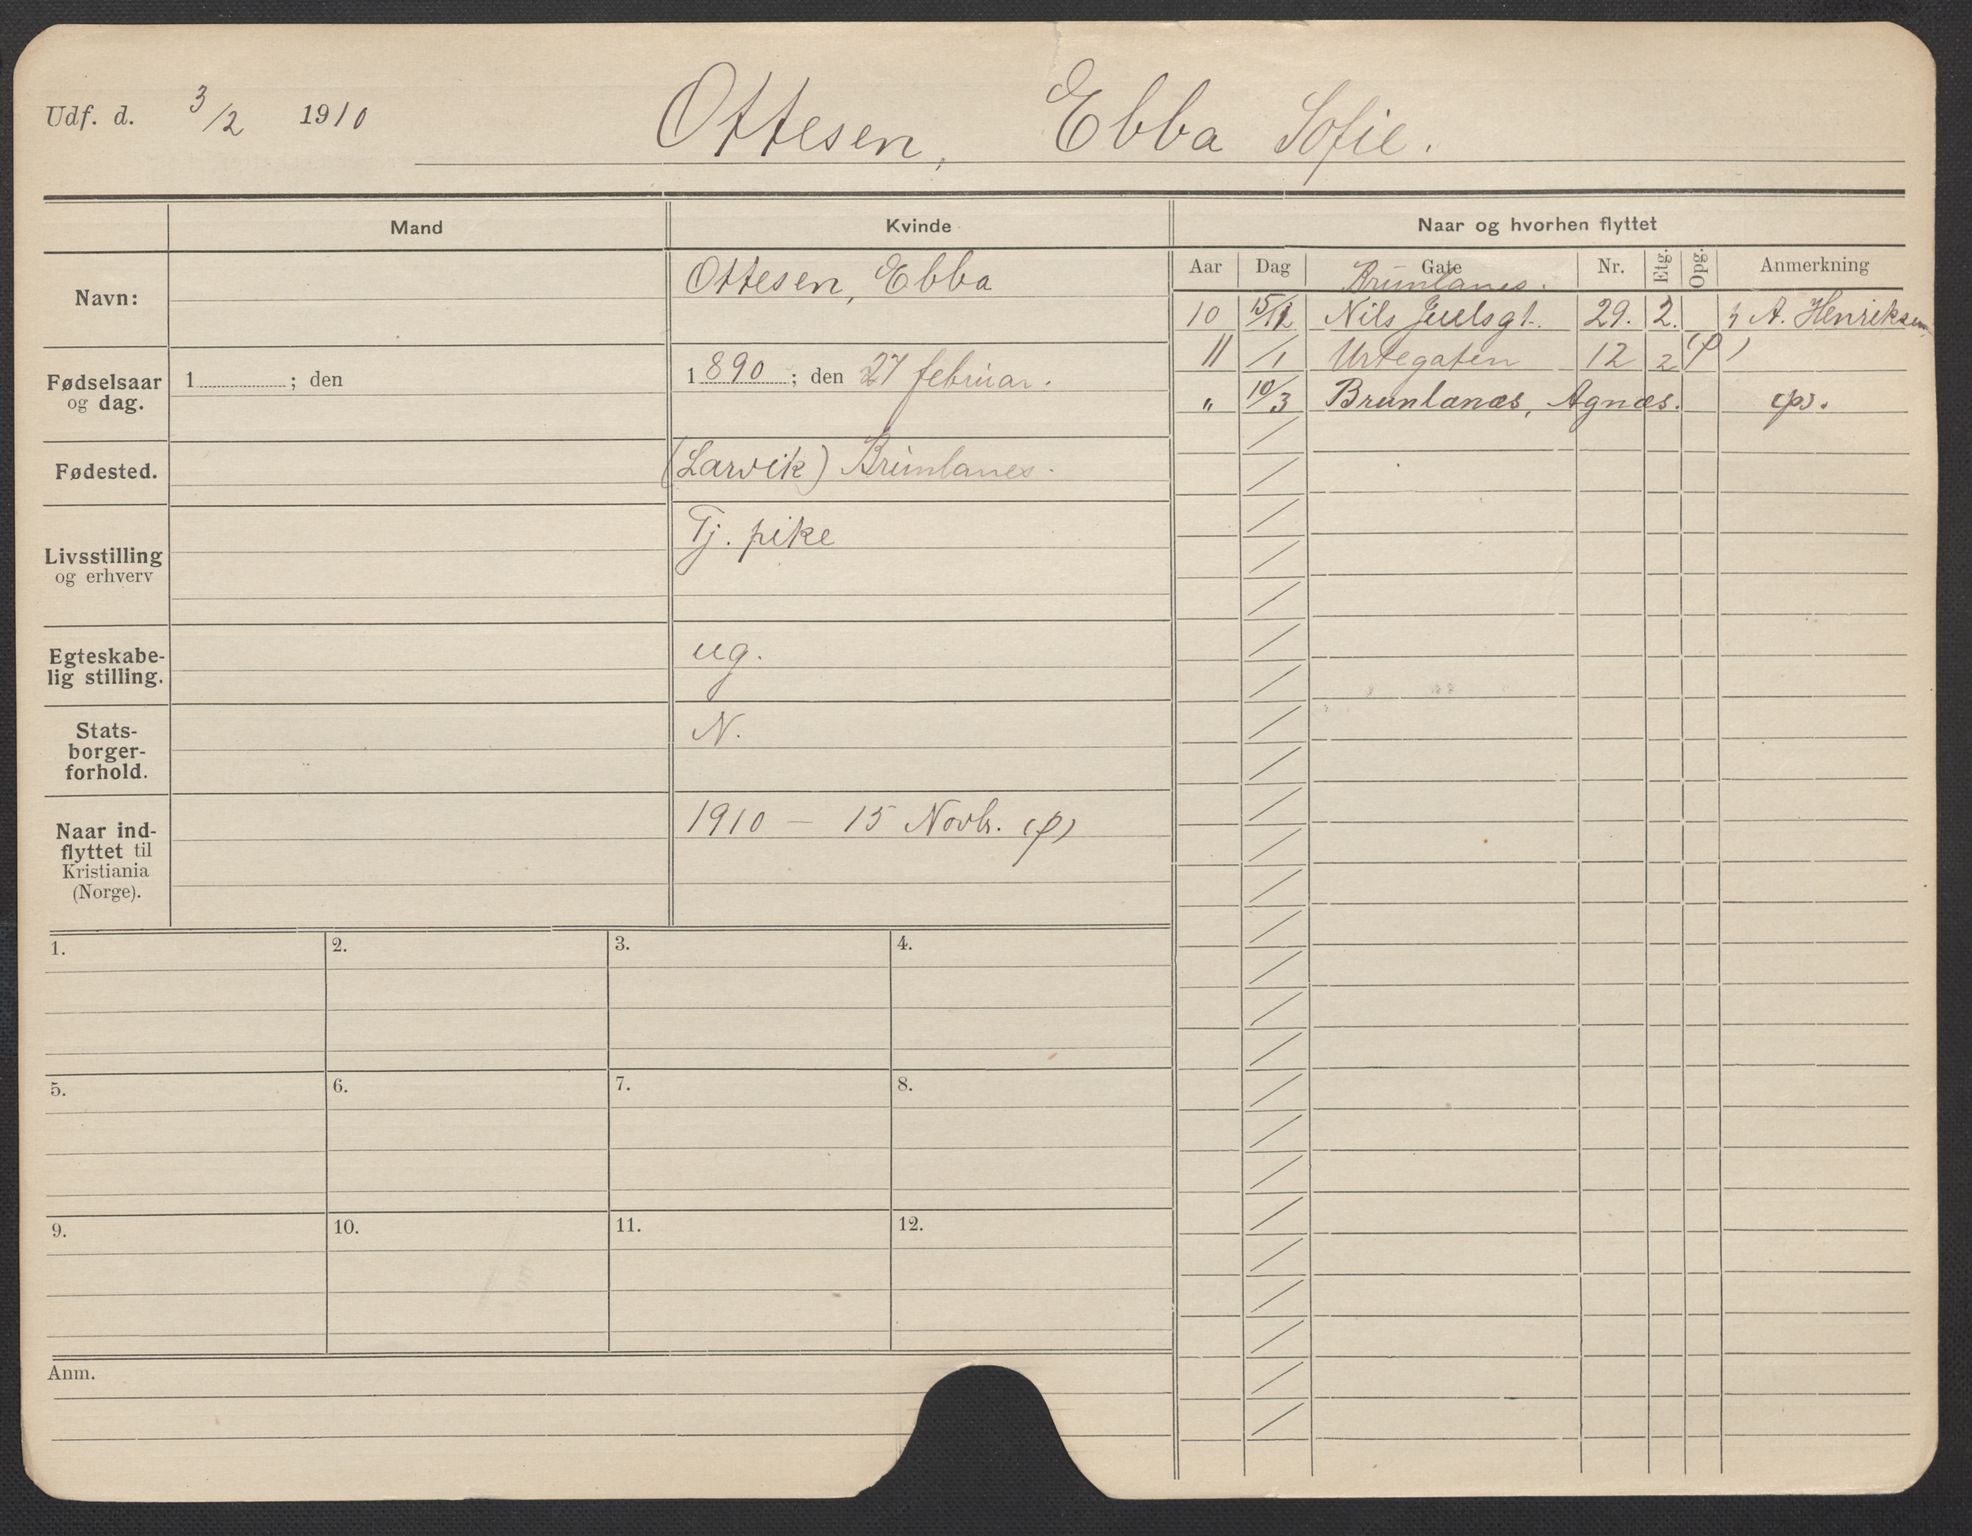 Udf. d. 3/2 1910 Ottesen, Ebba Sofie.
Mand Kvinde Naar og hvorhen flyttet
Navn: Ottesen, Ebba
Fødselsaar
og dag. 1 ; den 1890; den 27 februar.
Fødested. (Larvik) Brunlanes.
Livsstilling
og erhverv Tj. pike
Egteskabe-
lig stilling. ug.
Stats-
borger-
forhold. N.
Naar ind-
flyttet til
Kristiania
(Norge). 1910 – 15 Novbr. (p)
Aar Dag Gate Nr. Etg. Opg. Anmerkning
Brunlanes.
10 15/11 Nils Juelsgt. 29. 2. A. Henriksen
11 /1 Urtegaten 12 2 (p)
" 10/3 Brunlanæs, Agnæs. (p).
1. 2. 3. 4.
5. 6. 7. 8.
9. 10. 11. 12.
Anm.